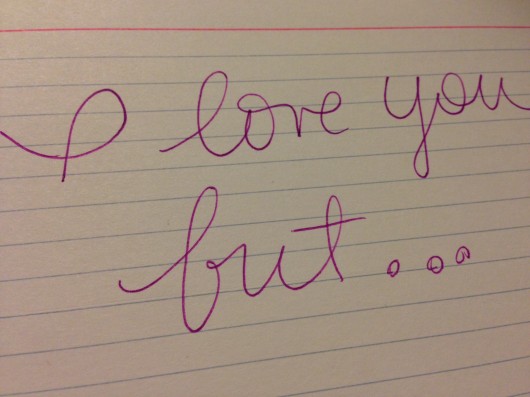 I love you
but...